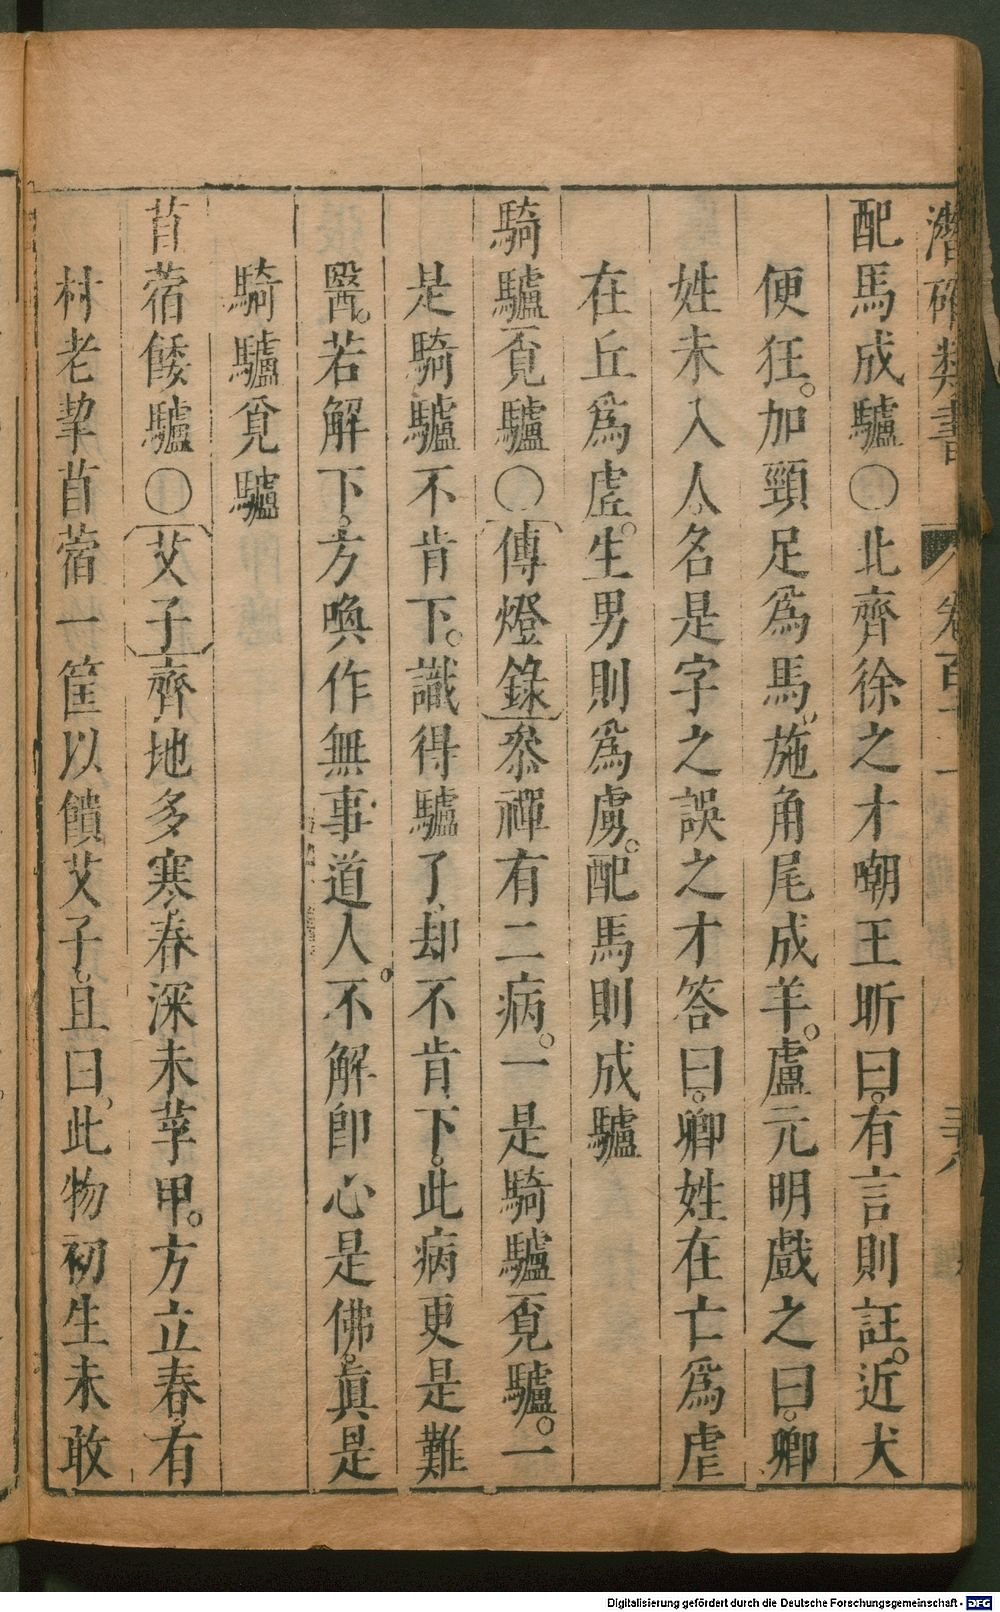 潛確類書 卷百二十一
配馬成驢○北齊徐之才嘲王昕曰。有言則註。近犬
便狂。加頸足爲馬。施角尾成羊。盧元明戲之曰。卿
姓未入人名是字之誤之才答曰。卿姓在亡爲虐
在丘爲虗。生男則爲虜。配馬則成驢
騎驢覔驢○傳燈錄叅禪有二病。一是騎驢覔驢。一
是騎驢不肯下。識得驢了却不肯下。此病更是難
醫。若解下。方喚作無事道人。不解即心是佛。眞是
騎驢覓驢
苜蓿餧驢○艾子齊地多寒春深未莩甲。方立春有
村老挈苜蓿一筐以饋艾子。且曰。此物初生未敢
Digitalisierung gefördert durch die Deutsche Forschungsgemeinschaft - DFG